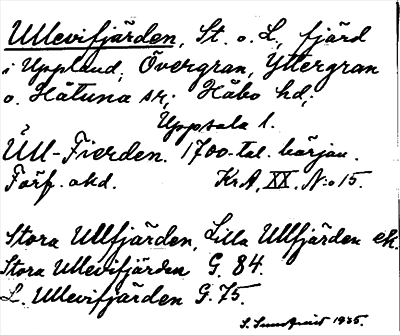 Ullevifjärden, St. o. L., fjärd
i Uppland, Övergran, Yttergran
o. Håtuna sr; Håbo hd;
Uppsala l.
Ull-Fierden. 1700-tal. början.
Förf. okd. KrA, XX, N:o 15.
Stora Ullfjärden, Lilla Ullfjärden ek.
Stora Ullevifjärden G. 84.
L. Ullevifjärden G. 75.
S. Sundqvist 1935.